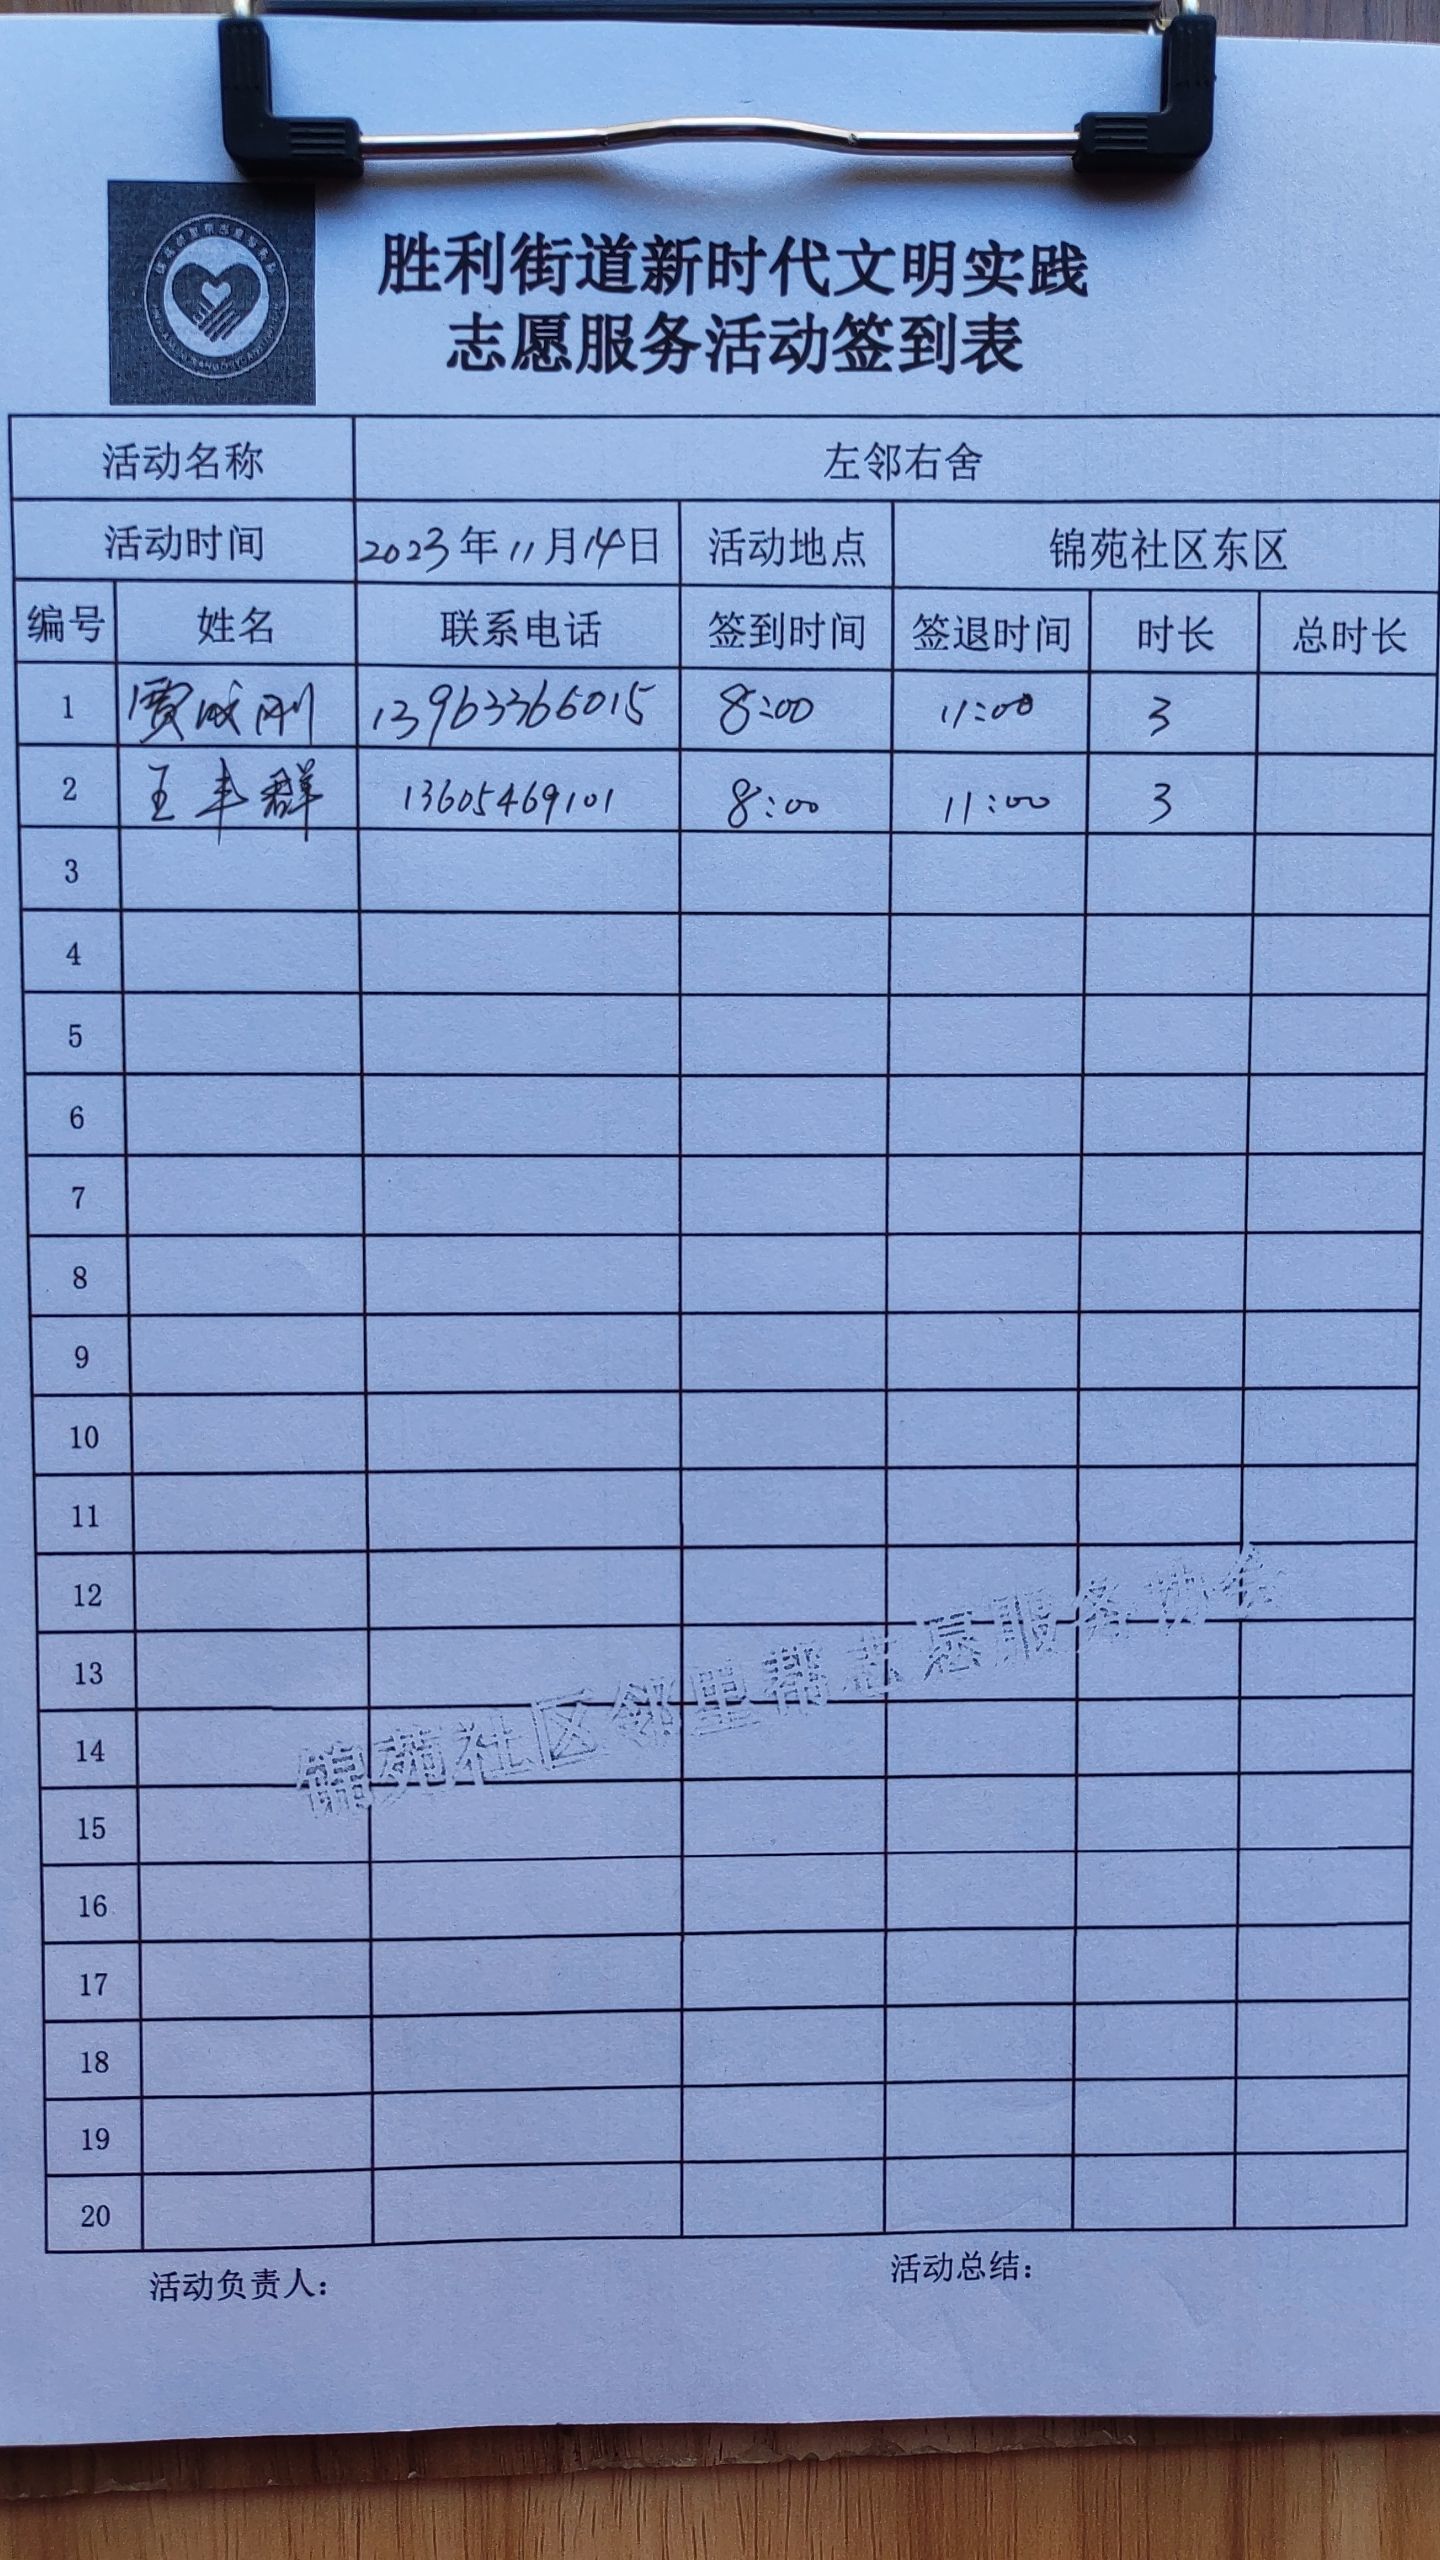 胜利街道新时代文明实践
志愿服务活动签到表
活动名称 左邻右舍
活动时间 2023年11月14日 活动地点 锦苑社区东区
编号 姓名 联系电话 签到时间 签退时间 时长 总时长
1 贾成刚 13963366015 8:00 11:00 3
2 王丰群 13605469101 8:00 11:00 3
3
4
5
6
7
8
9
10
11
12
13
14
15
16
17
18
19
20
锦苑社区邻里帮志愿服务协会
活动负责人： 活动总结：